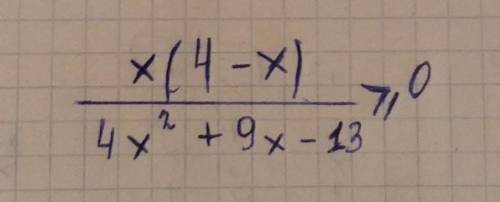 x(4-x)
4x² + 9x - 13 ⩾ 0